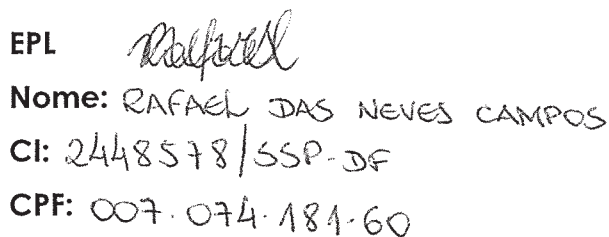 EPL Rafael
Nome: RAFAEL DAS NEVES CAMPOS
CI: 2448578/SSP-DF
CPF: 007.074.181-60